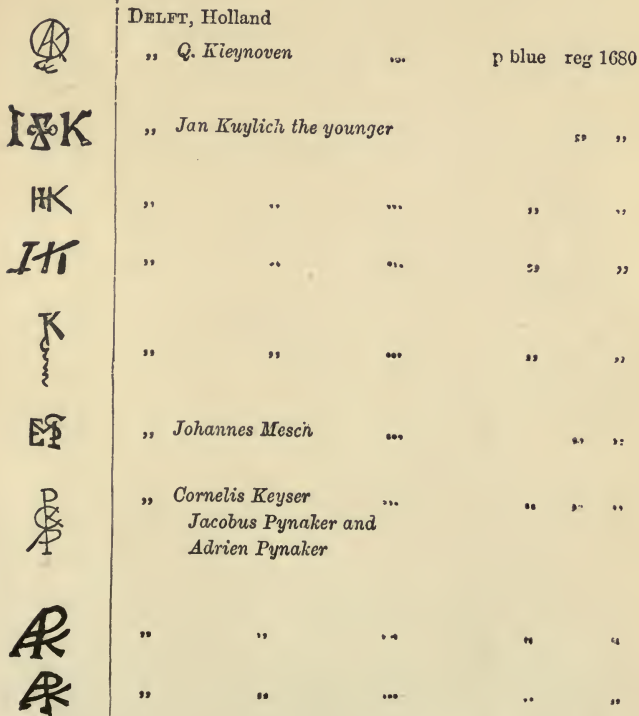 DELFT, Holland
„ Q. Kleynoven ... p blue reg 1680
I K „ Jan Kuylich the younger „ „
HK „ „ ... „ „
IK „ „ ... „ „
K „ „ ... „ „
„ Johannes Mesch ... „ „
„ Cornelis Keyser ... „ „ „
Jacobus Pynaker and
Adrien Pynaker
APK „ „ ... „ „
APK „ „ ... „ „